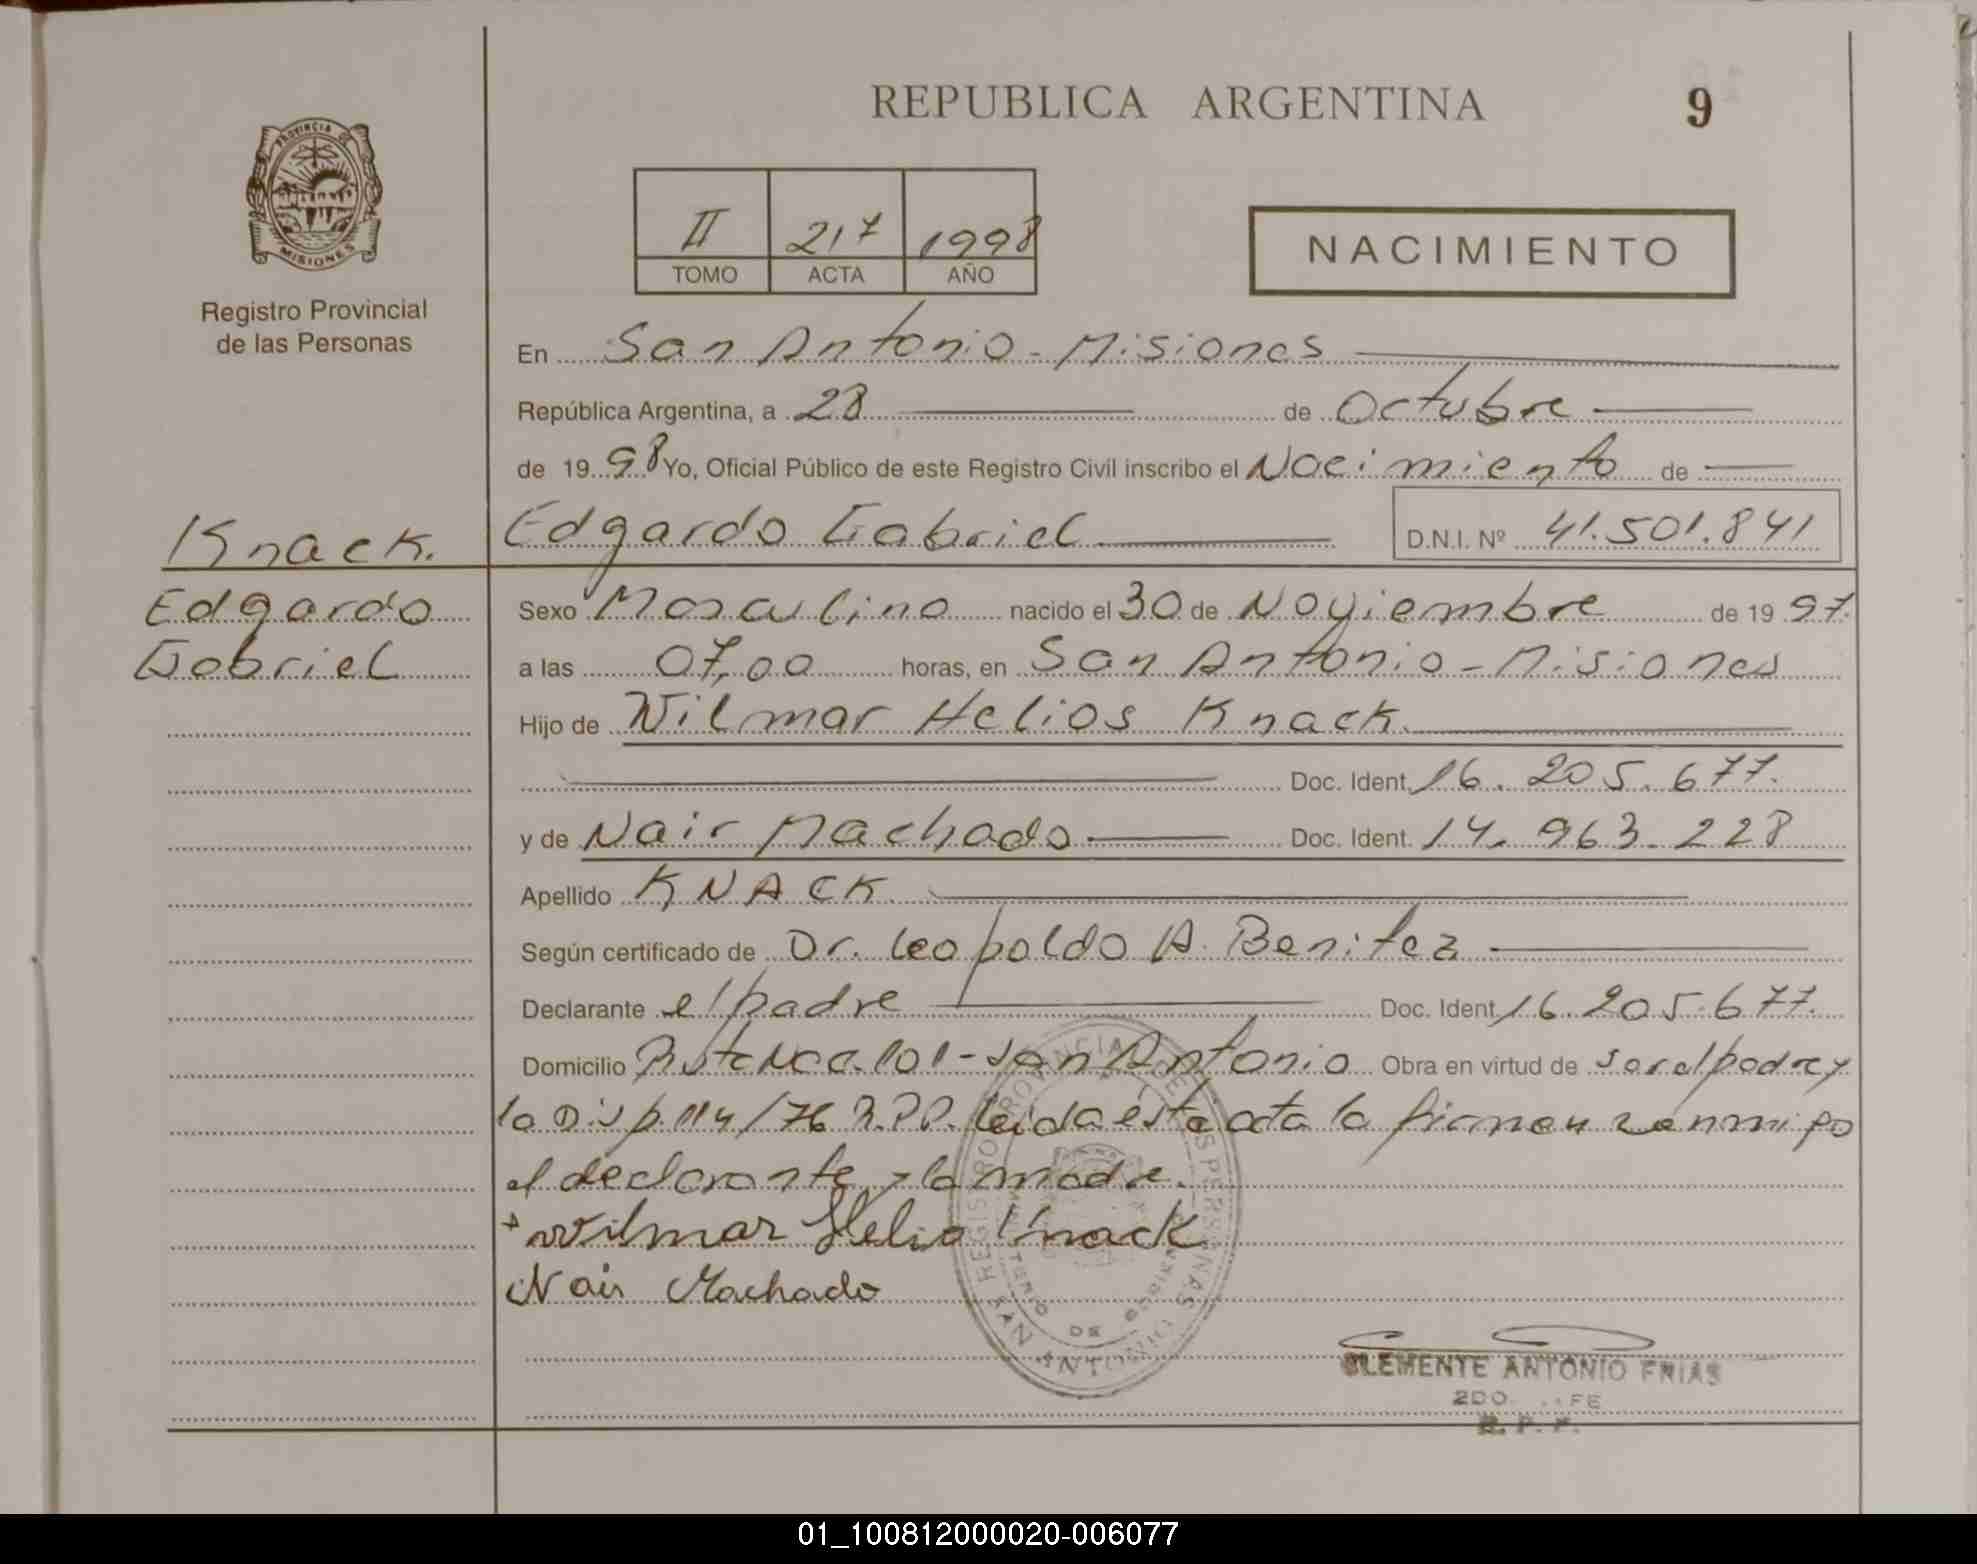 REPUBLICA ARGENTINA
9
PROVINCIA
MISIONES
Registro Provincial
de las Personas
II 217 1998
TOMO ACTA AÑO
NACIMIENTO
En San Antonio - Misiones
República Argentina, a 28 de Octubre
de 19 98 Yo, Oficial Público de este Registro Civil inscribo el Nacimiento de
Knack. Edgardo Gabriel D.N.I. Nº 41.501.841
Edgardo
Gabriel
Sexo Masculino nacido el 30 de Noviembre de 19 97.
a las 07,00 horas, en San Antonio - Misiones
Hijo de Wilmar Helios Knack.
Doc. Ident. 16.205.677.
y de Nair Machado Doc. Ident. 14.963.228
Apellido KNACK
Según certificado de Dr. Leopoldo A. Benitez
Declarante el padre Doc. Ident. 16.205.677.
Domicilio Ruta Nac. 101 - San Antonio Obra en virtud de ser el padre y
la Disp. 114/76 R.P.P. Leida esta acta la firman
el declarante y la madre.
Wilmar Helio Knack
Nair Machado
CLEMENTE ANTONIO FRIAS
2DO. FE
R. P. P.
01_100812000020-006077